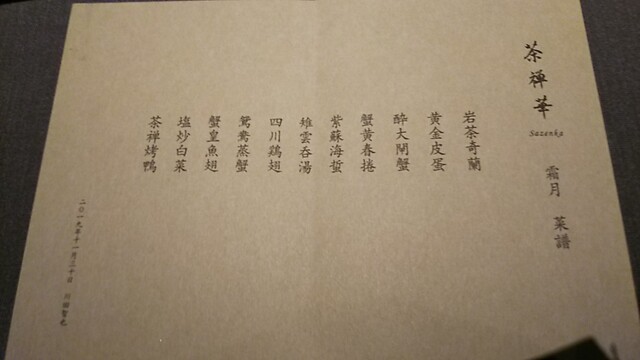 茶禅華
Sazenka
霜月 菜譜
岩茶奇蘭
黄金皮蛋
酔大閘蟹
蟹黄春捲
紫蘇海蜇
雉雲呑湯
四川鶏翅
鴛鴦蒸蟹
蟹皇魚翅
塩炒白菜
茶禅烤鴨
二〇一九年十一月三十日 川田智也